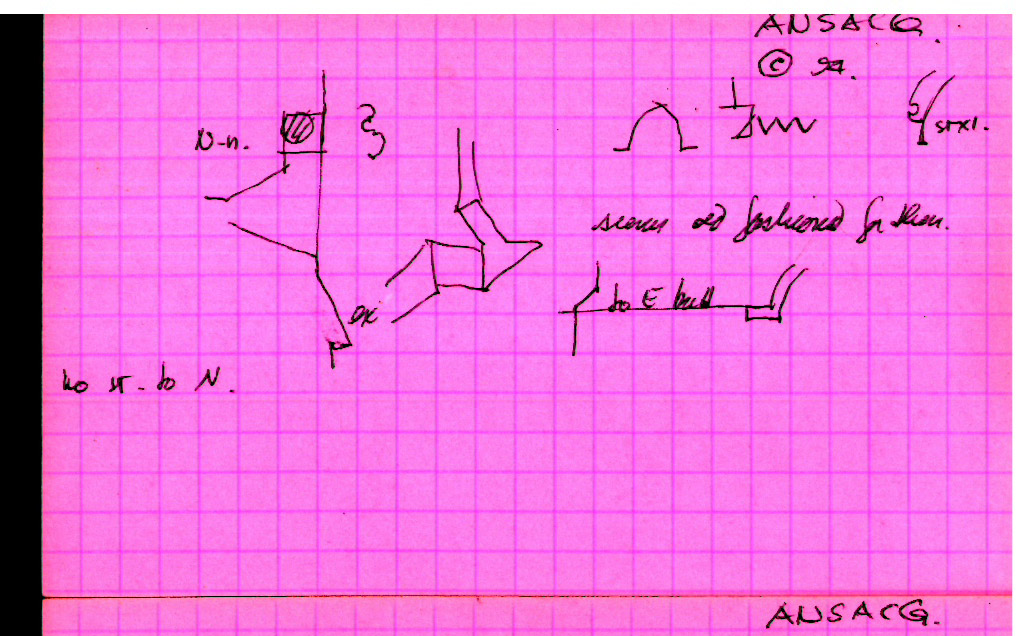 ANSACG.
©
N-n.
st x1.
seems old fashioned for then.
to E butt
ex
no st. to N.
ANSACG.